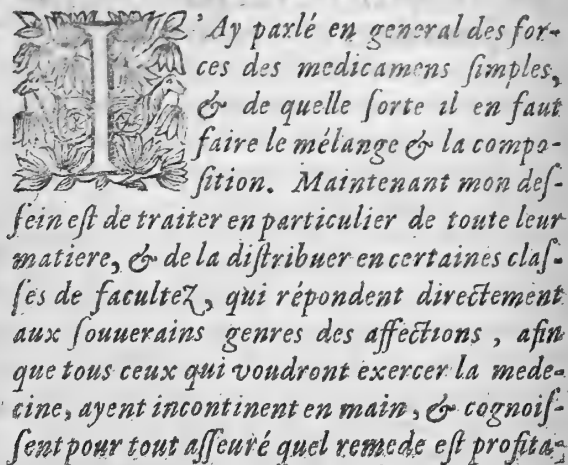 I'Ay parlé en general des for-
ces des medicamens ſimples,
& de quelle ſorte il en faut
faire le mélange & la compo-
ſition. Maintenant mon deſ-
ſein eſt de traiter en particulier de toute leur
matiere, & de la diſtribuer en certaines claſ-
ſes de facultez, qui répondent directement
aux ſouuerains genres des affections, afin
que tous ceux qui voudront exercer la mede-
cine, ayent incontinent en main, & cognoiſ-
ſent pour tout aſſeuré quel remede eſt profita-